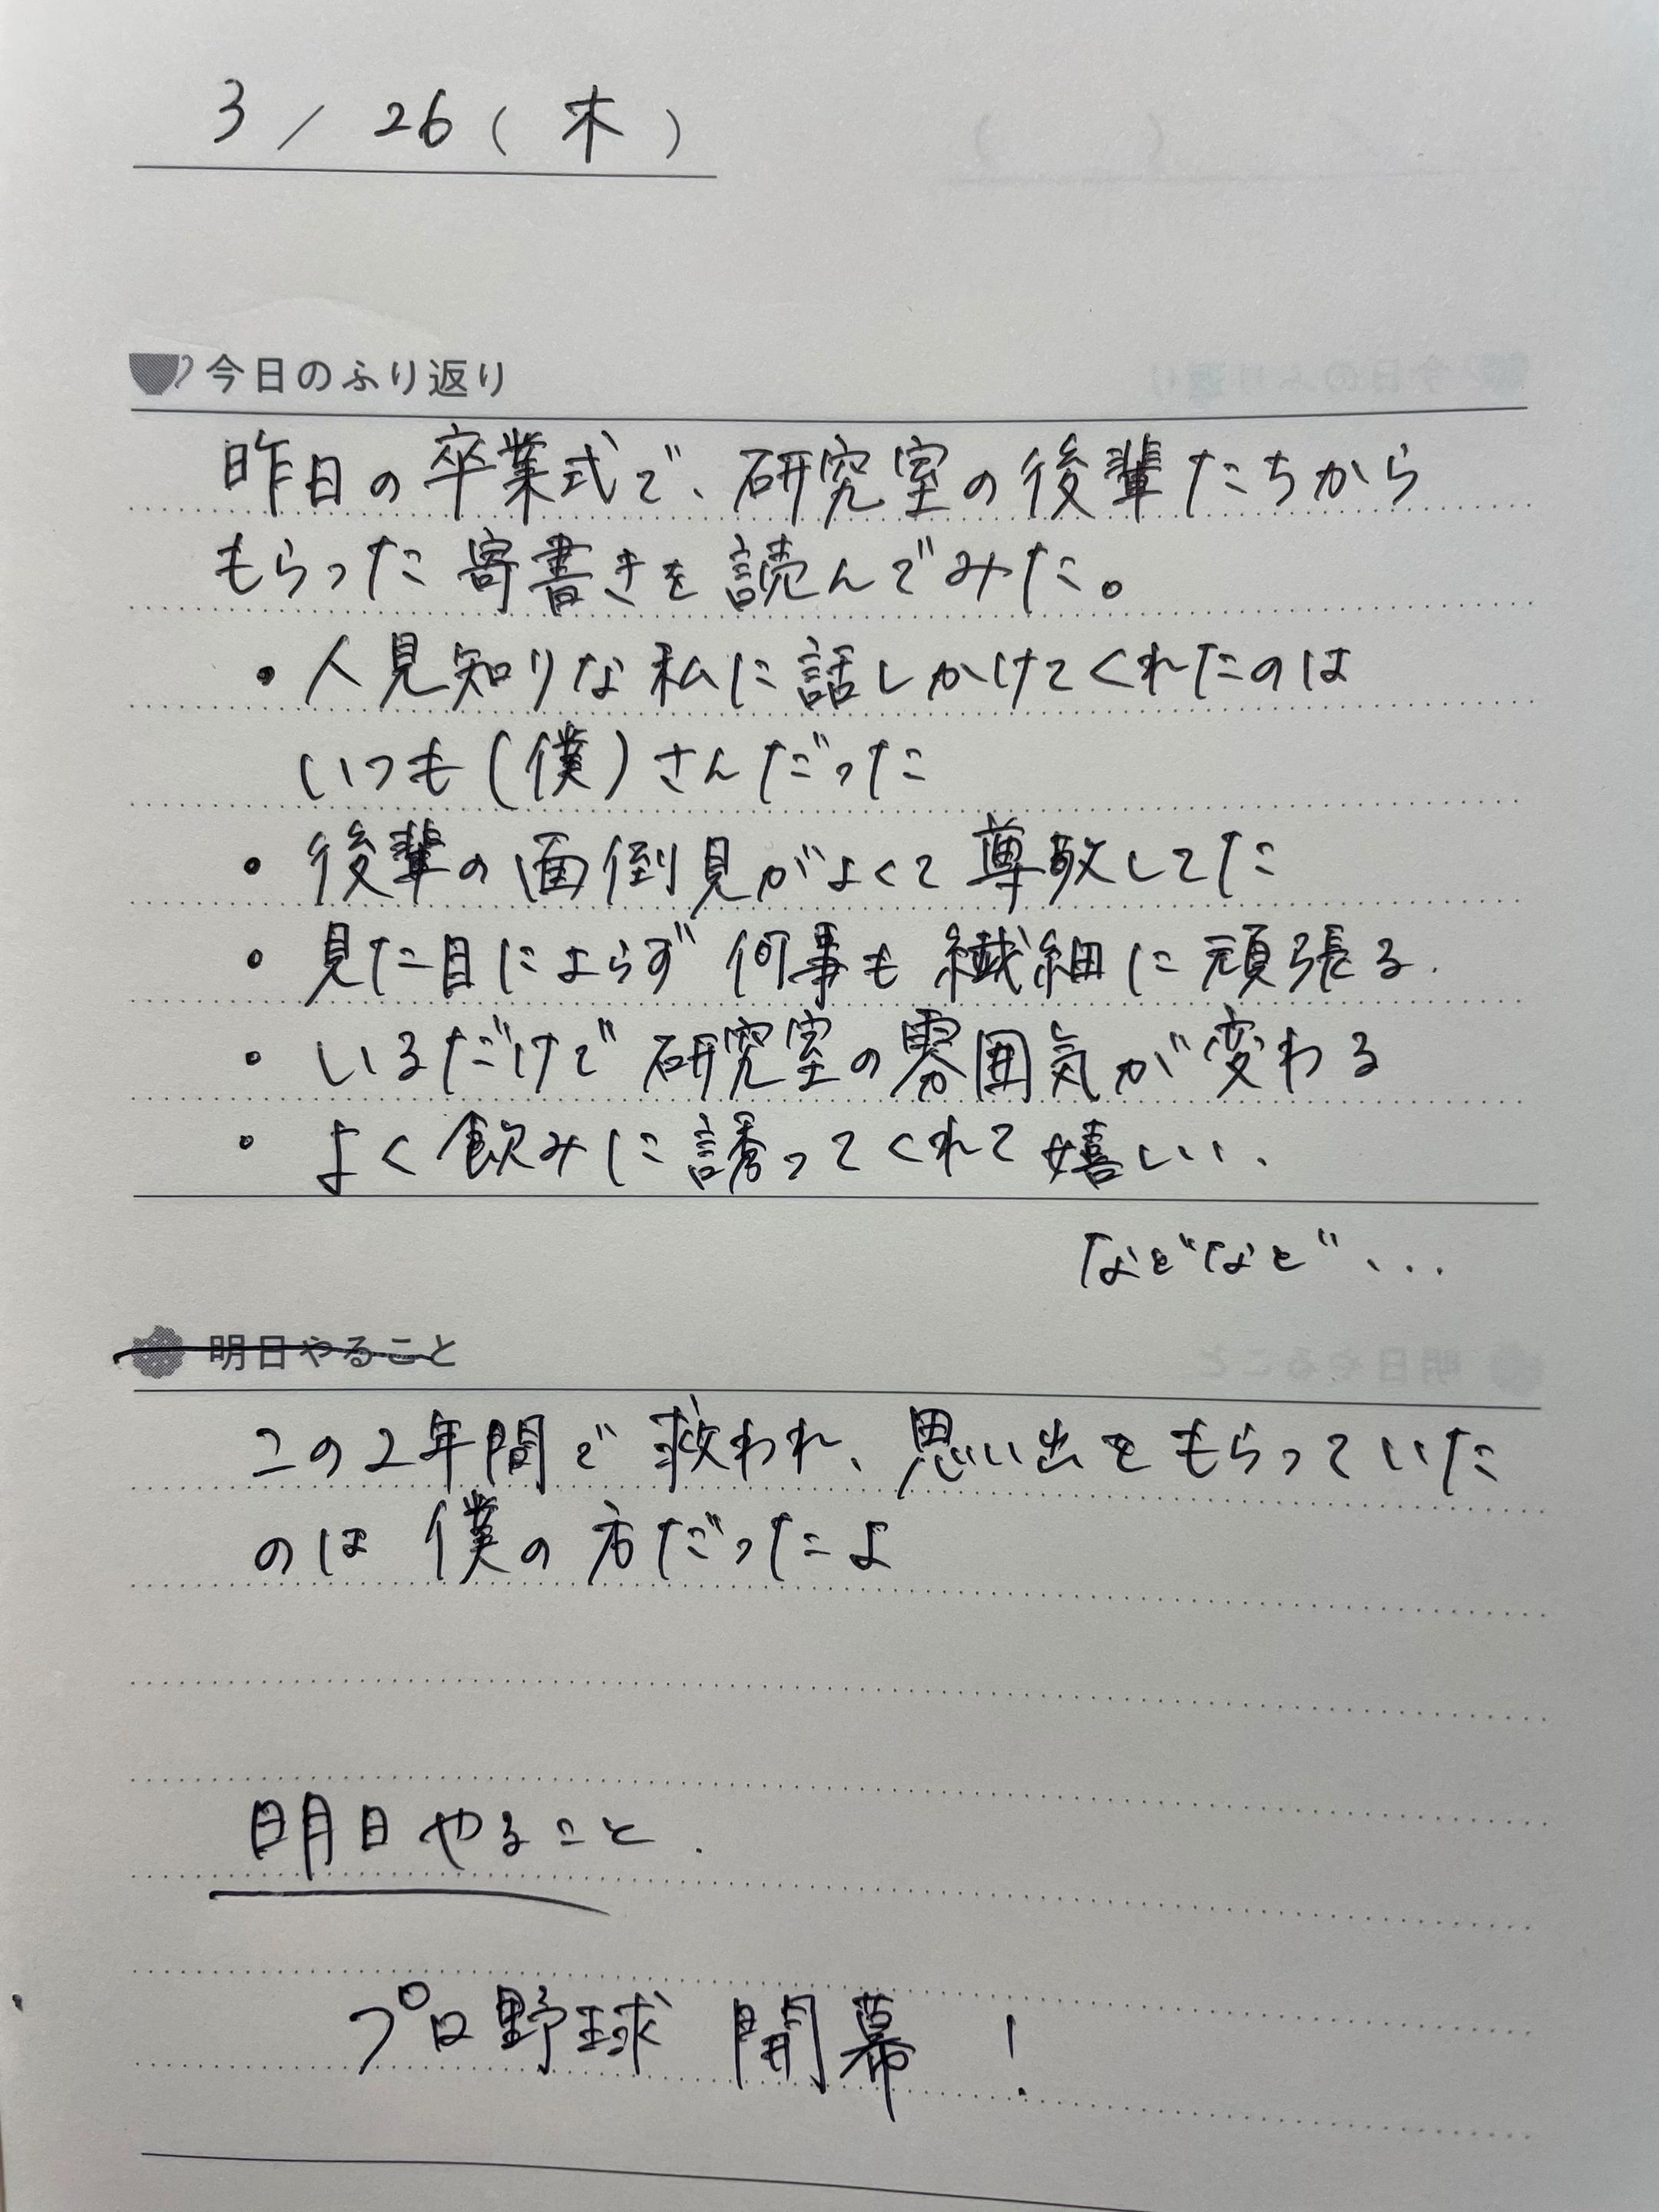 3/26(木)
今日のふり返り
昨日の卒業式で、研究室の後輩たちから
もらった寄書きを読んでみた。
・人見知りな私に話しかけてくれたのは
いつも(僕)さんだった
・後輩の面倒見がよくて尊敬してた
・見た目によらず何事も繊細に頑張る.
・いるだけで研究室の雰囲気が変わる
・よく飲みに誘ってくれて嬉しい、
などなど、...
明日やること
この2年間で救われ、思い出をもらっていた
のは僕の方だったよ
明日やること.
プロ野球 開幕!